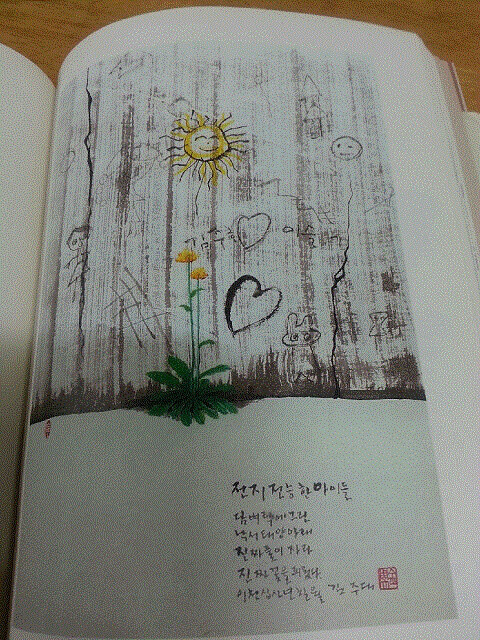 전지전능한 아이들
담벼락에 그린
낙서 태양 아래
진짜 풀이 자라
진짜 꽃을 피웠다.
이천십사년 칠월 김주대